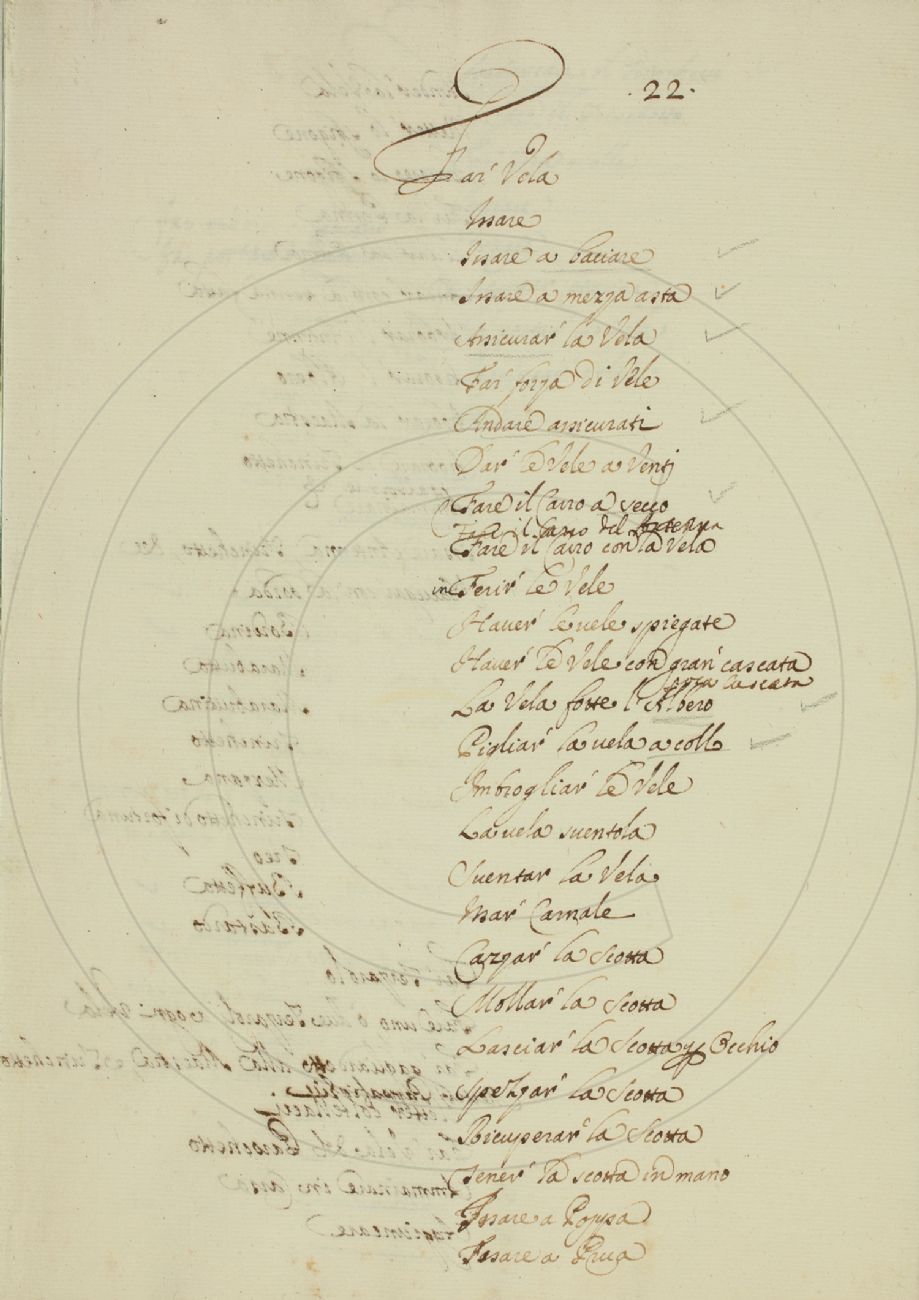 ·22·
Far' Vela
Issare
Issare a baciare
Issare a mezza asta
Assicurar' la Vela
Far' forza di Vele
Andare assicurati
Dar' le Vele a Ventj
Fare il Carro a secco
il Carro del
Fare il Carro con la Vela
in Ferir' le Vele
Hauer' le uele spiegate
Hauer' le Vele con gran' cascata
poca cascata
La Vela fotte l'Albero
Pigliar' la uela a collo
Imbrogliar' le Vele
La uela suentola
Suentar la Vela
Mar' Carnale
Cazzar' la Scotta
Mollar' la Scotta
Lasciar' la Scotta p Occhio
Spezzar' la Scotta
Ricuperar' la Scotta
Tener' la scotta in mano
Issare a Poppa
Issare a Prua